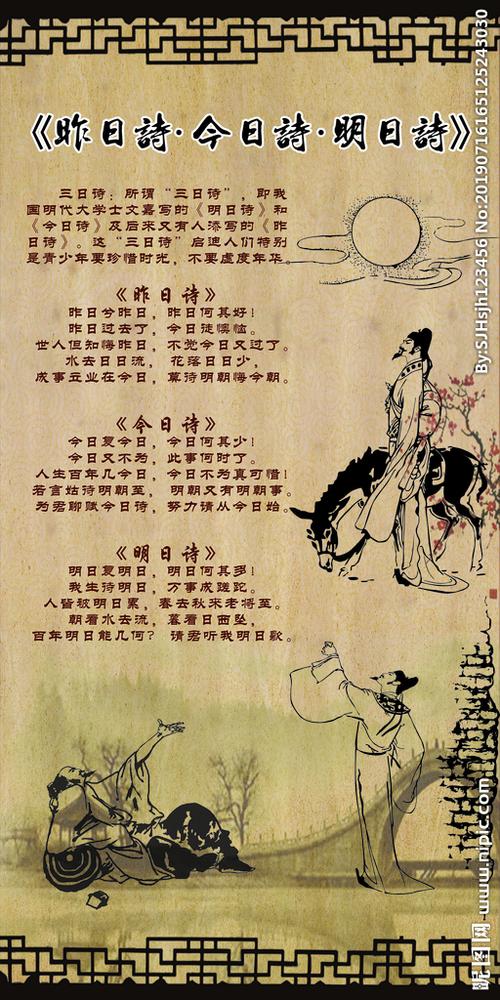 《昨日詩·今日詩·明日詩》
三日诗:所谓“三日诗”,即我
国明代大学士文嘉写的《明日诗》和
《今日诗》及后来又有人添写的《昨
日诗》。这“三日诗”启迪人们特别
是青少年要珍惜时光,不要虚度年华。
《昨日诗》
昨日兮昨日,昨日何其好!
昨日过去了,今日徒懊恼。
世人但知悔昨日,不觉今日又过了。
水去日日流,花落日日少,
成事立业在今日,莫待明朝悔今朝。
《今日诗》
今日复今日,今日何其少!
今日又不为,此事何时了。
人生百年几今日,今日不为真可惜!
若言姑待明朝至,明朝又有明朝事。
为君聊赋今日诗,努力请从今日始。
《明日诗》
明日复明日,明日何其多!
我生待明日,万事成蹉跎。
人皆被明日累,春去秋来老将至。
朝看水去流,暮看日西坠,
百年明日能几何?请君听我明日歌。
By:SJHsjh123456 No:20190716165125243030
昵图网 www.nipic.com